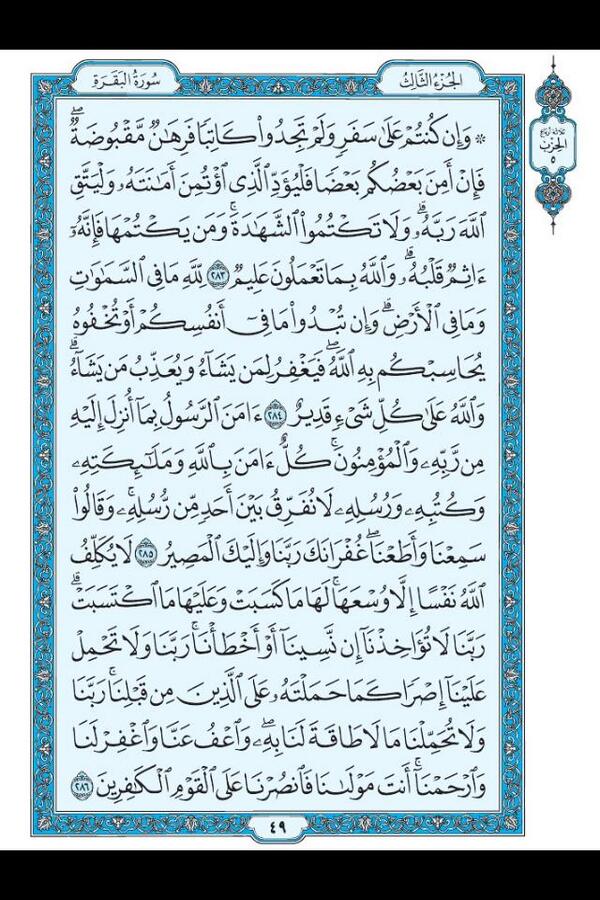 الجُزْءُ الثَّالِثُ
سُورَةُ البَقَرَةِ
ثلاثة أرباع
الحِزْب
٥
۞ وَإِن كُنتُمْ عَلَىٰ سَفَرٍ وَلَمْ تَجِدُوا۟ كَاتِبًا فَرِهَٰنٌ مَّقْبُوضَةٌ ۖ
فَإِنْ أَمِنَ بَعْضُكُم بَعْضًا فَلْيُؤَدِّ ٱلَّذِى ٱؤْتُمِنَ أَمَٰنَتَهُۥ وَلْيَتَّقِ
ٱللَّهَ رَبَّهُۥ ۗ وَلَا تَكْتُمُوا۟ ٱلشَّهَٰدَةَ ۚ وَمَن يَكْتُمْهَا فَإِنَّهُۥٓ
ءَاثِمٌ قَلْبُهُۥ ۗ وَٱللَّهُ بِمَا تَعْمَلُونَ عَلِيمٌ ٢٨٣ لِّلَّهِ مَا فِى ٱلسَّمَٰوَٰتِ
وَمَا فِى ٱلْأَرْضِ ۗ وَإِن تُبْدُوا۟ مَا فِىٓ أَنفُسِكُمْ أَوْ تُخْفُوهُ
يُحَاسِبْكُم بِهِ ٱللَّهُ ۖ فَيَغْفِرُ لِمَن يَشَآءُ وَيُعَذِّبُ مَن يَشَآءُ ۗ
وَٱللَّهُ عَلَىٰ كُلِّ شَىْءٍ قَدِيرٌ ٢٨٤ ءَامَنَ ٱلرَّسُولُ بِمَآ أُنزِلَ إِلَيْهِ
مِن رَّبِّهِۦ وَٱلْمُؤْمِنُونَ ۚ كُلٌّ ءَامَنَ بِٱللَّهِ وَمَلَٰٓئِكَتِهِۦ
وَكُتُبِهِۦ وَرُسُلِهِۦ لَا نُفَرِّقُ بَيْنَ أَحَدٍ مِّن رُّسُلِهِۦ ۚ وَقَالُوا۟
سَمِعْنَا وَأَطَعْنَا ۖ غُفْرَانَكَ رَبَّنَا وَإِلَيْكَ ٱلْمَصِيرُ ٢٨٥ لَا يُكَلِّفُ
ٱللَّهُ نَفْسًا إِلَّا وُسْعَهَا ۚ لَهَا مَا كَسَبَتْ وَعَلَيْهَا مَا ٱكْتَسَبَتْ ۗ
رَبَّنَا لَا تُؤَاخِذْنَآ إِن نَّسِينَآ أَوْ أَخْطَأْنَا ۚ رَبَّنَا وَلَا تَحْمِلْ
عَلَيْنَآ إِصْرًا كَمَا حَمَلْتَهُۥ عَلَى ٱلَّذِينَ مِن قَبْلِنَا ۚ رَبَّنَا
وَلَا تُحَمِّلْنَا مَا لَا طَاقَةَ لَنَا بِهِۦ ۖ وَٱعْفُ عَنَّا وَٱغْفِرْ لَنَا
وَٱرْحَمْنَآ ۚ أَنتَ مَوْلَىٰنَا فَٱنصُرْنَا عَلَى ٱلْقَوْمِ ٱلْكَٰفِرِينَ ٢٨٦
٤٩